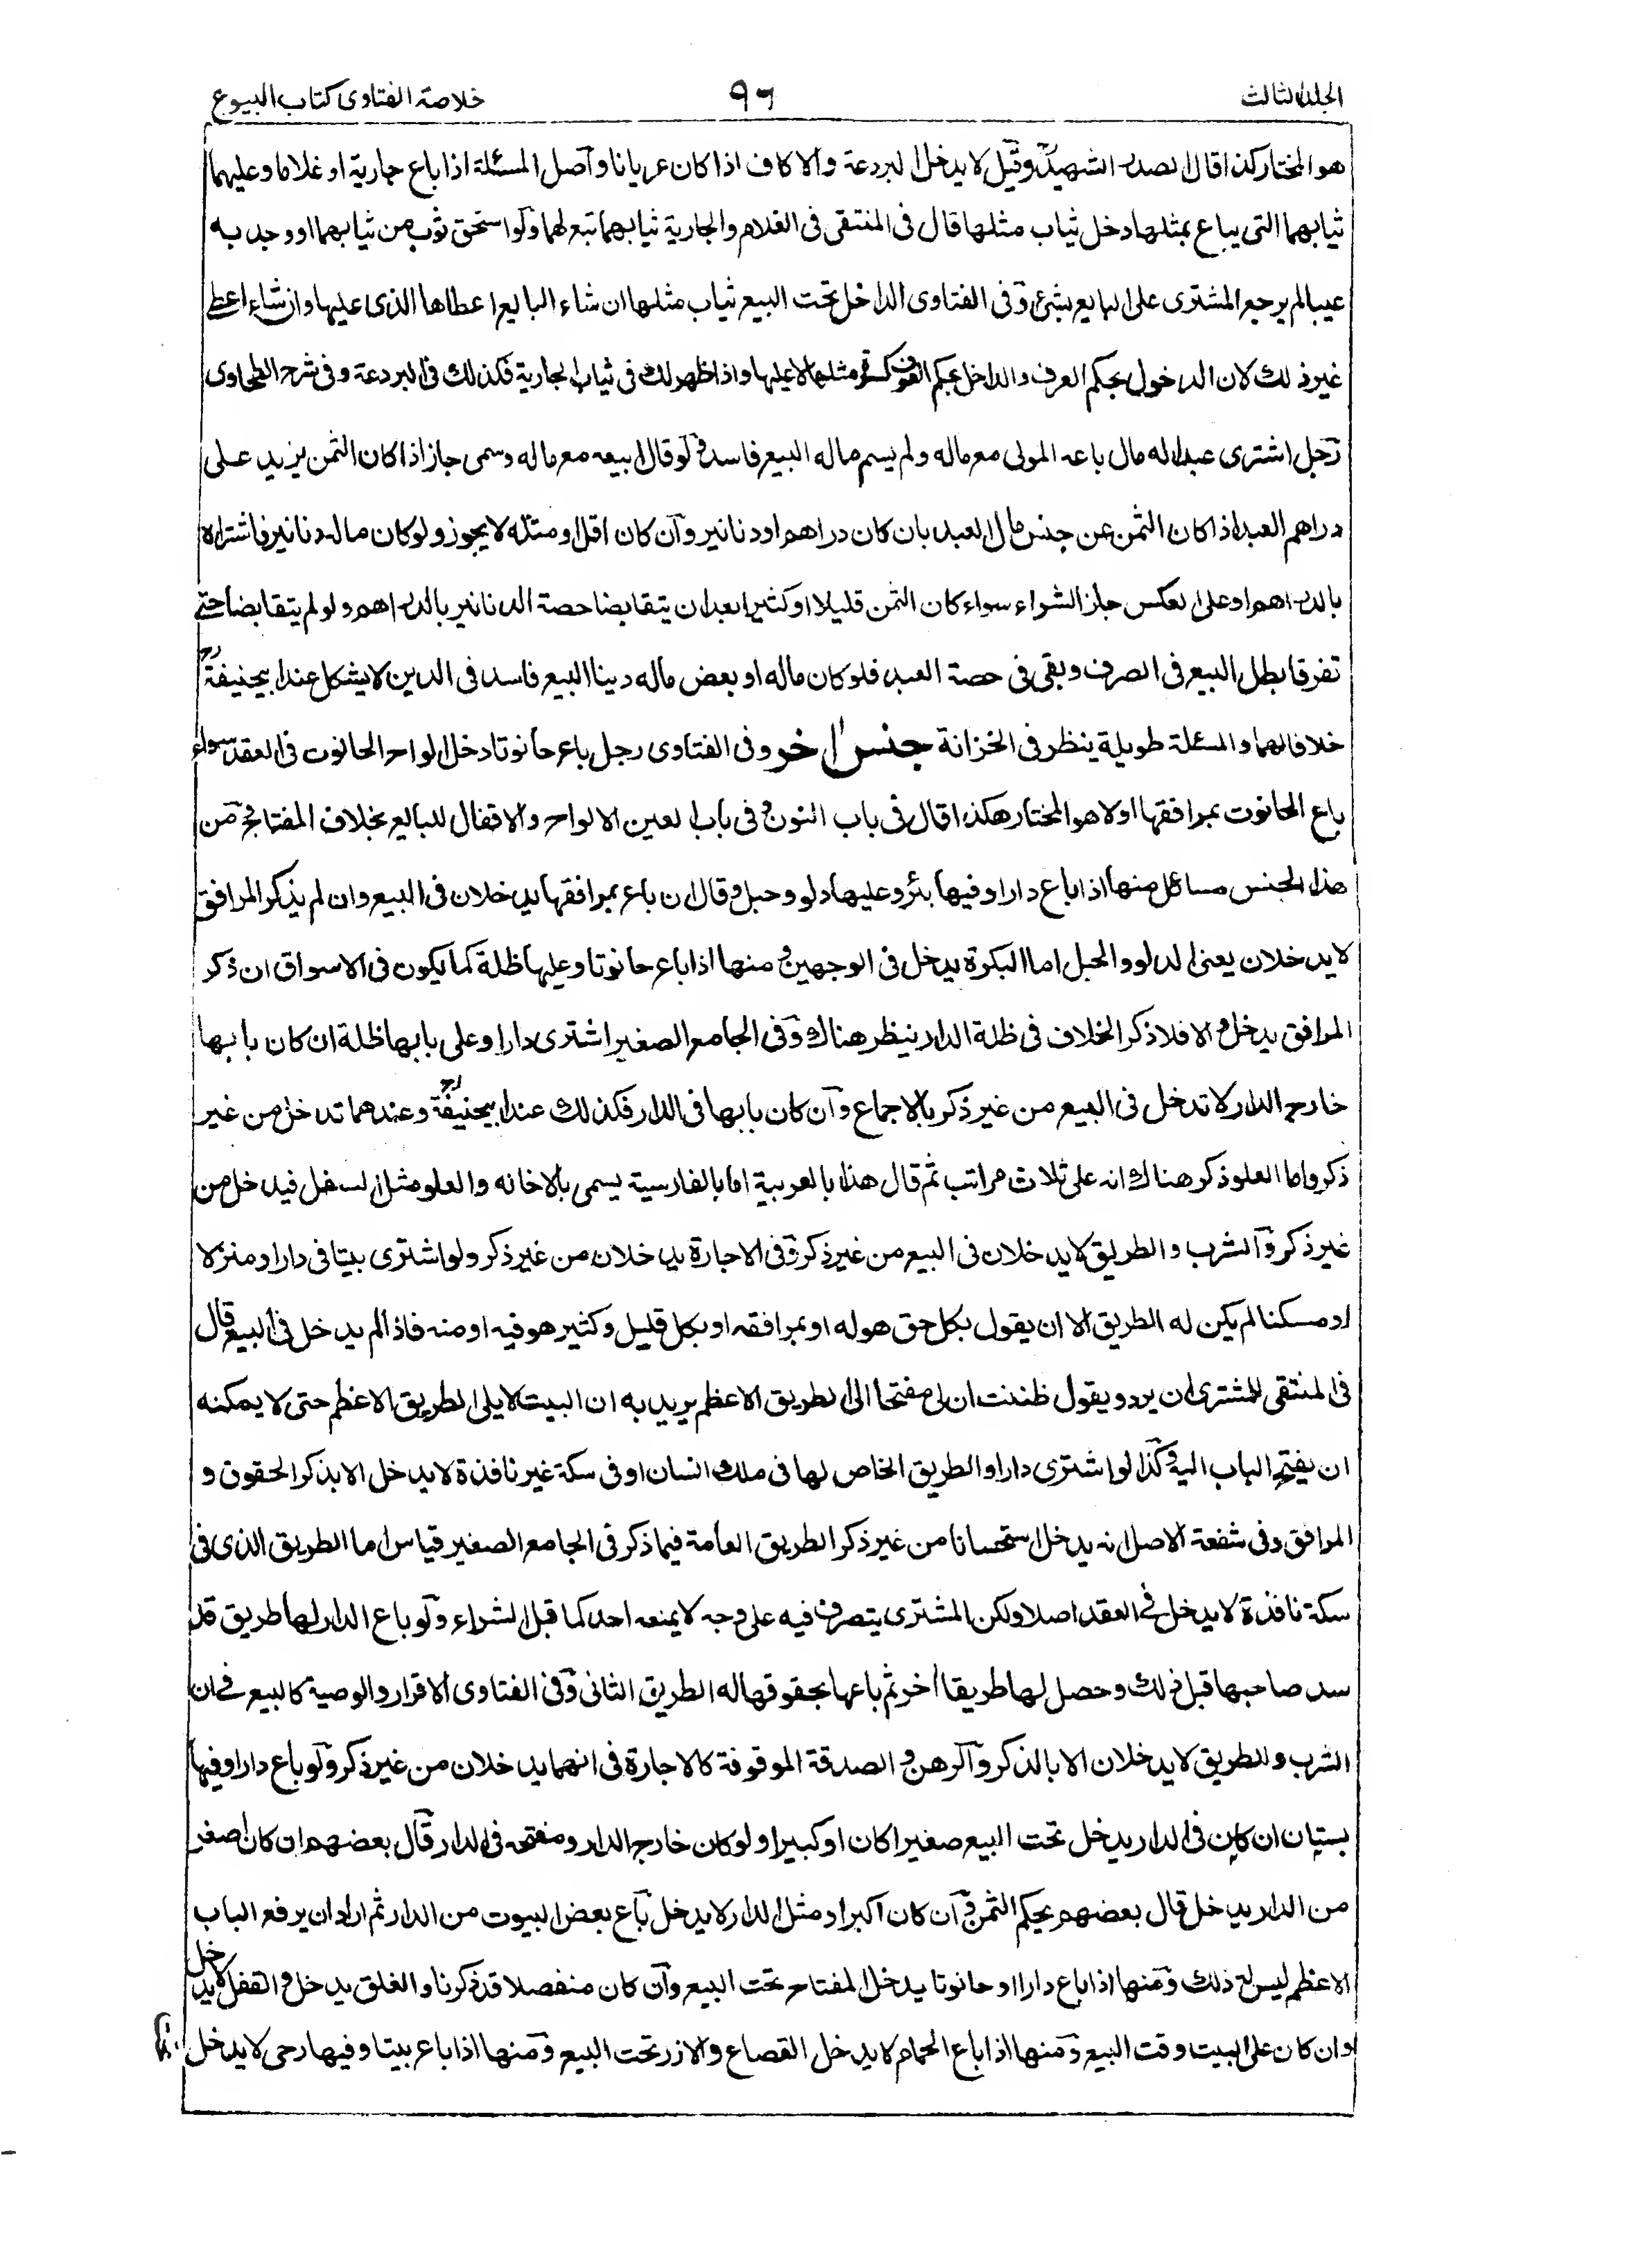 الجلد الثالث ٩٦ خلاصة الفتاوى كتاب البيوع
هو المختار كذا قال الصدر الشهيد وقيل لا يدخل البردعة والاكاف اذا كان عريانا واصل المسئلة اذا باع جارية او غلاما وعليهما
ثيابهما التى يباع بمثلها دخل ثياب مثلها قال فى المنتقى فى الغلام والجارية ثيابهما تبع لهما ولو استحق ثوب من ثيابهما او وجد به
عيبا لم يرجع المشترى على البايع بشئ وفى الفتاوى الداخل تحت البيع ثياب مثلها ان شاء البايع اعطاها الذى عليها وان شاء اعطى
غير ذلك لان الدخول بحكم العرف والداخل بحكم العرف مثلها لا عليها واذا ظهر لك فى ثياب الجارية فكذلك فى البردعة وفى شرح الطحاوى
رجل اشترى عبدا له مال باعه المولى مع ماله ولم يسم ماله البيع فاسد ولو قال ابيعه مع ماله وسمى جاز اذا كان الثمن يزيد على
دراهم العبد اذا كان الثمن من جنس مال العبد بان كان دراهم او دنانير وان كان اقل او مثله لا يجوز ولو كان ماله دنانير فاشتراه
بالدراهم او على العكس جاز الشراء سواء كان الثمن قليلا او كثيرا بعد ان يتقابضا حصة الدنانير بالدراهم ولو لم يتقابضا حتى
تفرقا بطل البيع فى الصرف وبقى فى حصة العبد فلو كان ماله او بعض ماله دينا البيع فاسد فى الدين لا يشكل عند ابيحنيفة رح
خلافا لهما والمسئلة طويلة ينظر فى الخزانة جنس اخر وفى الفتاوى رجل باع حانوتا دخل الواح الحانوت فى العقد سواء
باع الحانوت بمرافقها او لا هو المختار هكذا قال فى باب النون وفى باب العين الالواح والاقفال للبايع بخلاف المفتاح ومن
هذا الجنس مسائل منها اذا باع دارا وفيها بئر وعليها دلو وحبل وقال ان باع بمرافقها يدخلان فى البيع وان لم يذكر المرافق
لا يدخلان يعنى الدلو والحبل اما البكرة يدخل فى الوجهين ومنها اذا باع حانوتا وعليها ظلة كما يكون فى الاسواق ان ذكر
المرافق يدخل والا فلا ذكر الخلاف فى ظلة الدار ينظر هناك وفى الجامع الصغير اشترى دارا وعلى بابها ظلة ان كان بابها
خارج الدار لا تدخل فى البيع من غير ذكر بالاجماع وان كان بابها فى الدار فكذلك عند ابيحنيفة رح وعندهما تدخل من غير
ذكر واما العلو ذكر هناك انه على ثلاث مراتب ثم قال هذا بالعربية اما بالفارسية يسمى بالاخانه والعلو مثل السفل فيدخل من
غير ذكر والشرب والطريق لا يدخلان فى البيع من غير ذكر وفى الاجارة يدخلان من غير ذكر ولو اشترى بيتا فى دار او منزلا
او مسكنا لم يكن له الطريق الا ان يقول بكل حق هو له او بمرافقه او بكل قليل وكثير هو فيه او منه فاذا لم يدخل فى البيع قال
فى المنتقى للمشترى ان يرد ويقول ظننت ان لى مفتحا الى الطريق الاعظم يريد به ان البيت لا يلى الطريق الاعظم حتى لا يمكنه
ان يفتح الباب اليه وكذا لو اشترى دارا والطريق الخاص لها فى ملك انسان او فى سكة غير نافذة لا يدخل الا بذكر الحقوق و
المرافق وفى شفعة الاصل انه يدخل استحسانا من غير ذكر الطريق العامة فيما ذكر فى الجامع الصغير قياس اما الطريق الذى فى
سكة نافذة لا يدخل فى العقد اصلا ولكن المشترى يتصرف فيه على وجه لا يمنعه احد كما قبل الشراء ولو باع الدار لها طريق قد
سد صاحبها قبل ذلك وحصل لها طريقا اخر ثم باعها بحقوقها له الطريق الثانى وفى الفتاوى الاقرار والوصية كالبيع فى ان
الشرب والطريق لا يدخلان الا بالذكر والرهن والصدقة الموقوفة كالاجارة فى انهما يدخلان من غير ذكر ولو باع دارا وفيها
بستان ان كان فى الدار يدخل تحت البيع صغيرا كان او كبيرا ولو كان خارج الدار ومفتحه فى الدار قال بعضهم ان كان اصغر
من الدار يدخل قال بعضهم يحكم الثمن وان كان اكبر او مثل الدار لا يدخل باع بعض البيوت من الدار ثم اراد ان يرفع الباب
الاعظم ليس له ذلك ومنها اذا باع دارا او حانوتا يدخل المفتاح تحت البيع وان كان منفصلا قد ذكرنا والغلق يدخل والقفل لا يدخل
وان كان على البيت وقت البيع ومنها اذا باع الحمام لا يدخل القصاع والازر تحت البيع ومنها اذا باع بيتا وفيها رحى لا يدخل